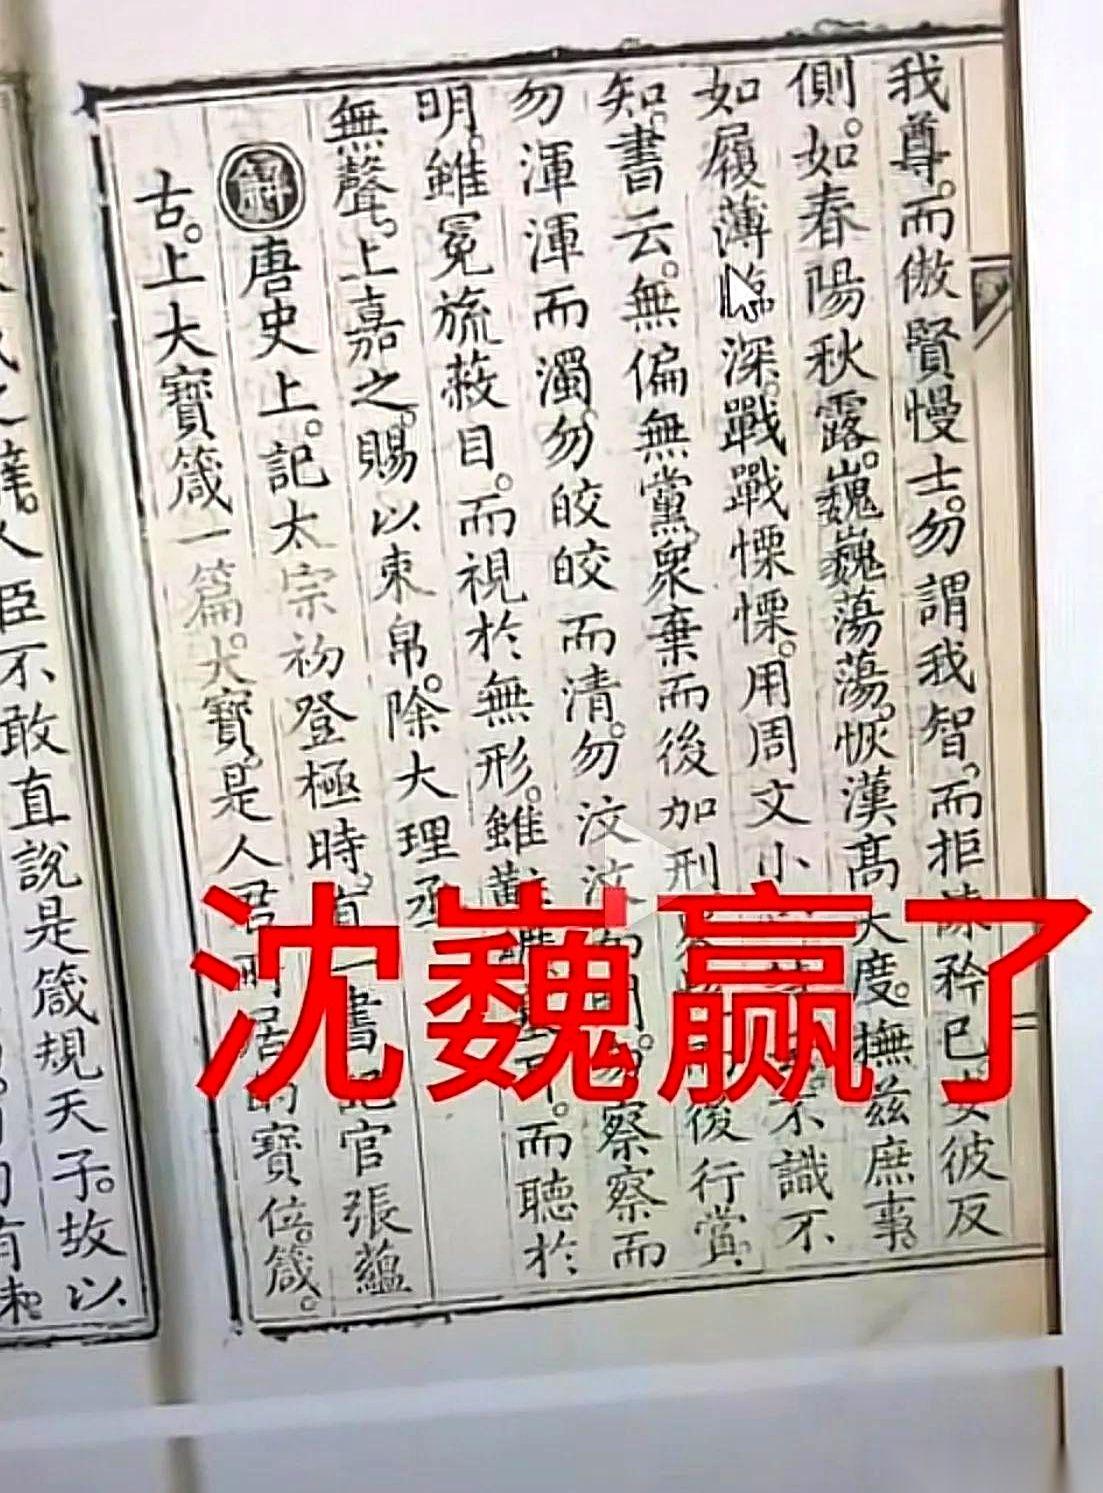 我尊。而傲賢慢士。勿謂我智。而拒諫矜已。安彼反
側。如春陽秋露。巍巍蕩蕩。恢漢高大度。撫茲庶事。
如履薄臨深。戰戰慄慄。用周文小不識不
知。書云。無偏無黨。衆棄而後加刑後行賞。
勿渾渾而濁。勿皎皎而清。勿汶汶而闇。勿察察而
明。雖冕旒蔽目。而視於無形。雖黈纊塞耳。而聽於
無聲。上嘉之。賜以束帛。除大理丞
解唐史上。記太宗初登極時。有一書記官張蘊
古。上大寶箴一篇。大寶。是人君所居的寶位。箴。
之辭。人臣不敢直說是箴規天子。故以
沈巍赢了